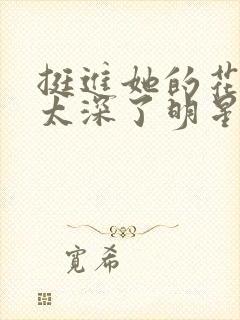 挺进她的花
太深了明星
宽希